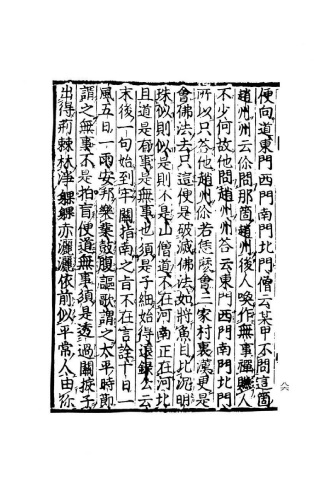 便向道東門西門南門北門僧云某甲不問這箇
趙州州云你問那箇趙州後人喚作無事禪賺人
不少何故他問趙州州答云東門西門南門北門
所以只答他趙州你若恁麽會三家村裏漢更是
會佛法去只這便是破滅佛法如將魚目比況明
珠似則似是則不是山僧道不在河南正在河北
且道是有事是無事也須是子細始得遠錄公云
末後一句始到牢關指南之旨不在言詮十日一
風五日一雨安邦樂業鼓腹謳歌謂之太平時節
謂之無事不是拍盲便道無事須是透過關捩子
出得荊棘林淨躶躶赤灑灑依前似平常人由你